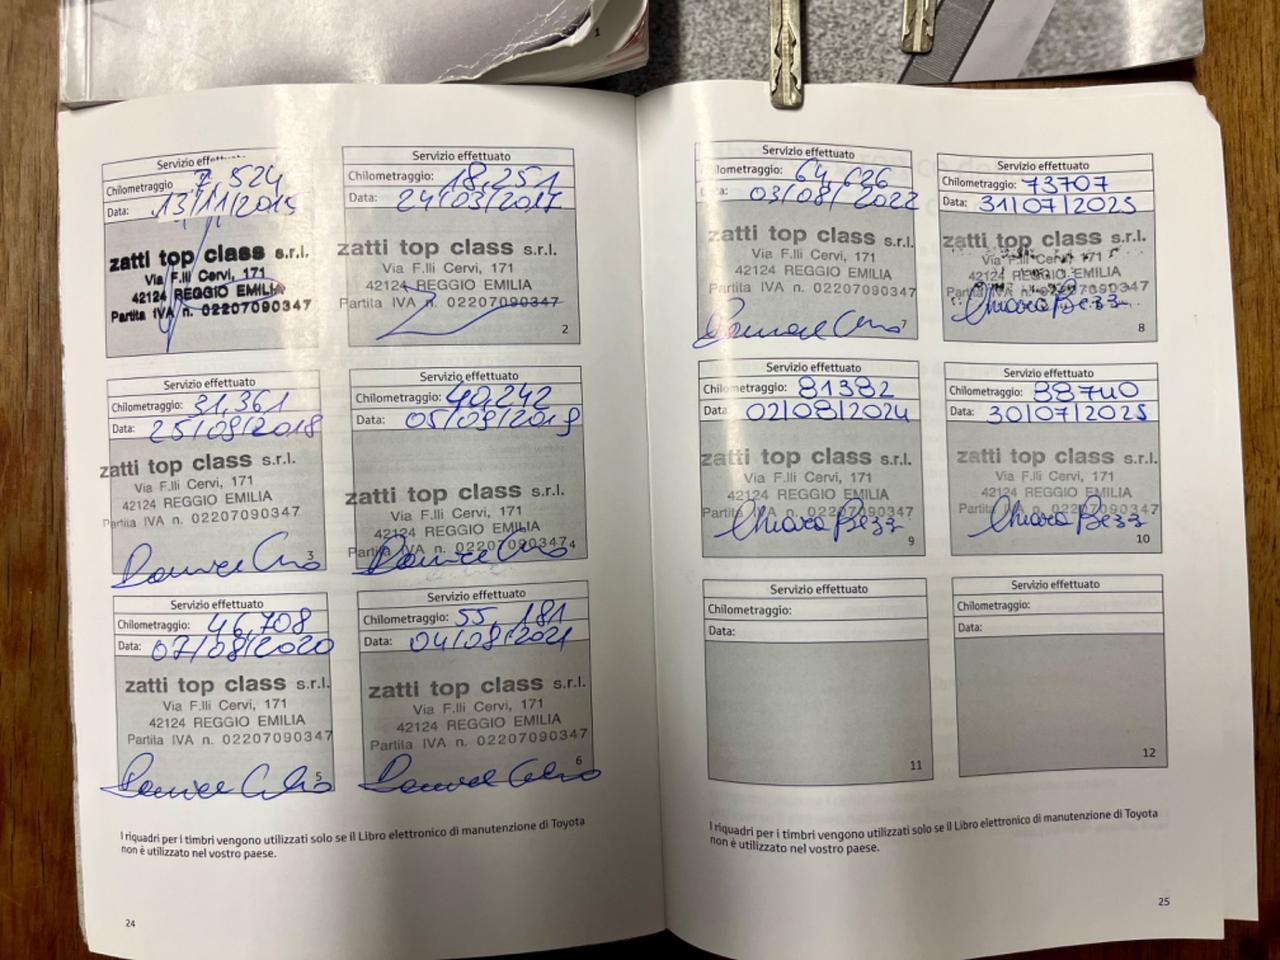 1
Servizio effettuato
Chilometraggio 7.524
Data: 13/11/2015
zatti top class s.r.l.
Via F.lli Cervi, 171
42124 REGGIO EMILIA
Partita IVA n. 02207090347
Servizio effettuato
Chilometraggio: 18.251
Data: 24/03/2017
zatti top class s.r.l.
Via F.lli Cervi, 171
42124 REGGIO EMILIA
Partita IVA n. 02207090347
2
Servizio effettuato
Chilometraggio: 31,361
Data: 25/09/2018
zatti top class s.r.l.
Via F.lli Cervi, 171
42124 REGGIO EMILIA
Partita IVA n. 02207090347
3
Servizio effettuato
Chilometraggio: 40,242
Data: 05/09/2019
zatti top class s.r.l.
Via F.lli Cervi, 171
42124 REGGIO EMILIA
Partita IVA n. 02207090347
4
Servizio effettuato
Chilometraggio: 46,708
Data: 07/08/2020
zatti top class s.r.l.
Via F.lli Cervi, 171
42124 REGGIO EMILIA
Partita IVA n. 02207090347
5
Servizio effettuato
Chilometraggio: 55,181
Data: 04/08/2021
zatti top class s.r.l.
Via F.lli Cervi, 171
42124 REGGIO EMILIA
Partita IVA n. 02207090347
6
I riquadri per i timbri vengono utilizzati solo se il Libro elettronico di manutenzione di Toyota
non è utilizzato nel vostro paese.
24
Servizio effettuato
Chilometraggio: 64,626
Data: 03/08/2022
zatti top class s.r.l.
Via F.lli Cervi, 171
42124 REGGIO EMILIA
Partita IVA n. 02207090347
7
Servizio effettuato
Chilometraggio: 73707
Data: 31/07/2023
zatti top class s.r.l.
Via F.lli Cervi, 171
42124 REGGIO EMILIA
Partita IVA n. 02207090347
Chiara Bezzi
8
Servizio effettuato
Chilometraggio: 81382
Data 02/08/2024
zatti top class s.r.l.
Via F.lli Cervi, 171
42124 REGGIO EMILIA
Partita IVA n. 02207090347
Chiara Bezzi
9
Servizio effettuato
Chilometraggio: 88740
Data: 30/07/2025
zatti top class s.r.l.
Via F.lli Cervi, 171
42124 REGGIO EMILIA
Partita IVA n. 02207090347
Chiara Bezzi
10
Servizio effettuato
Chilometraggio:
Data:
11
Servizio effettuato
Chilometraggio:
Data:
12
I riquadri per i timbri vengono utilizzati solo se il Libro elettronico di manutenzione di Toyota
non è utilizzato nel vostro paese.
25